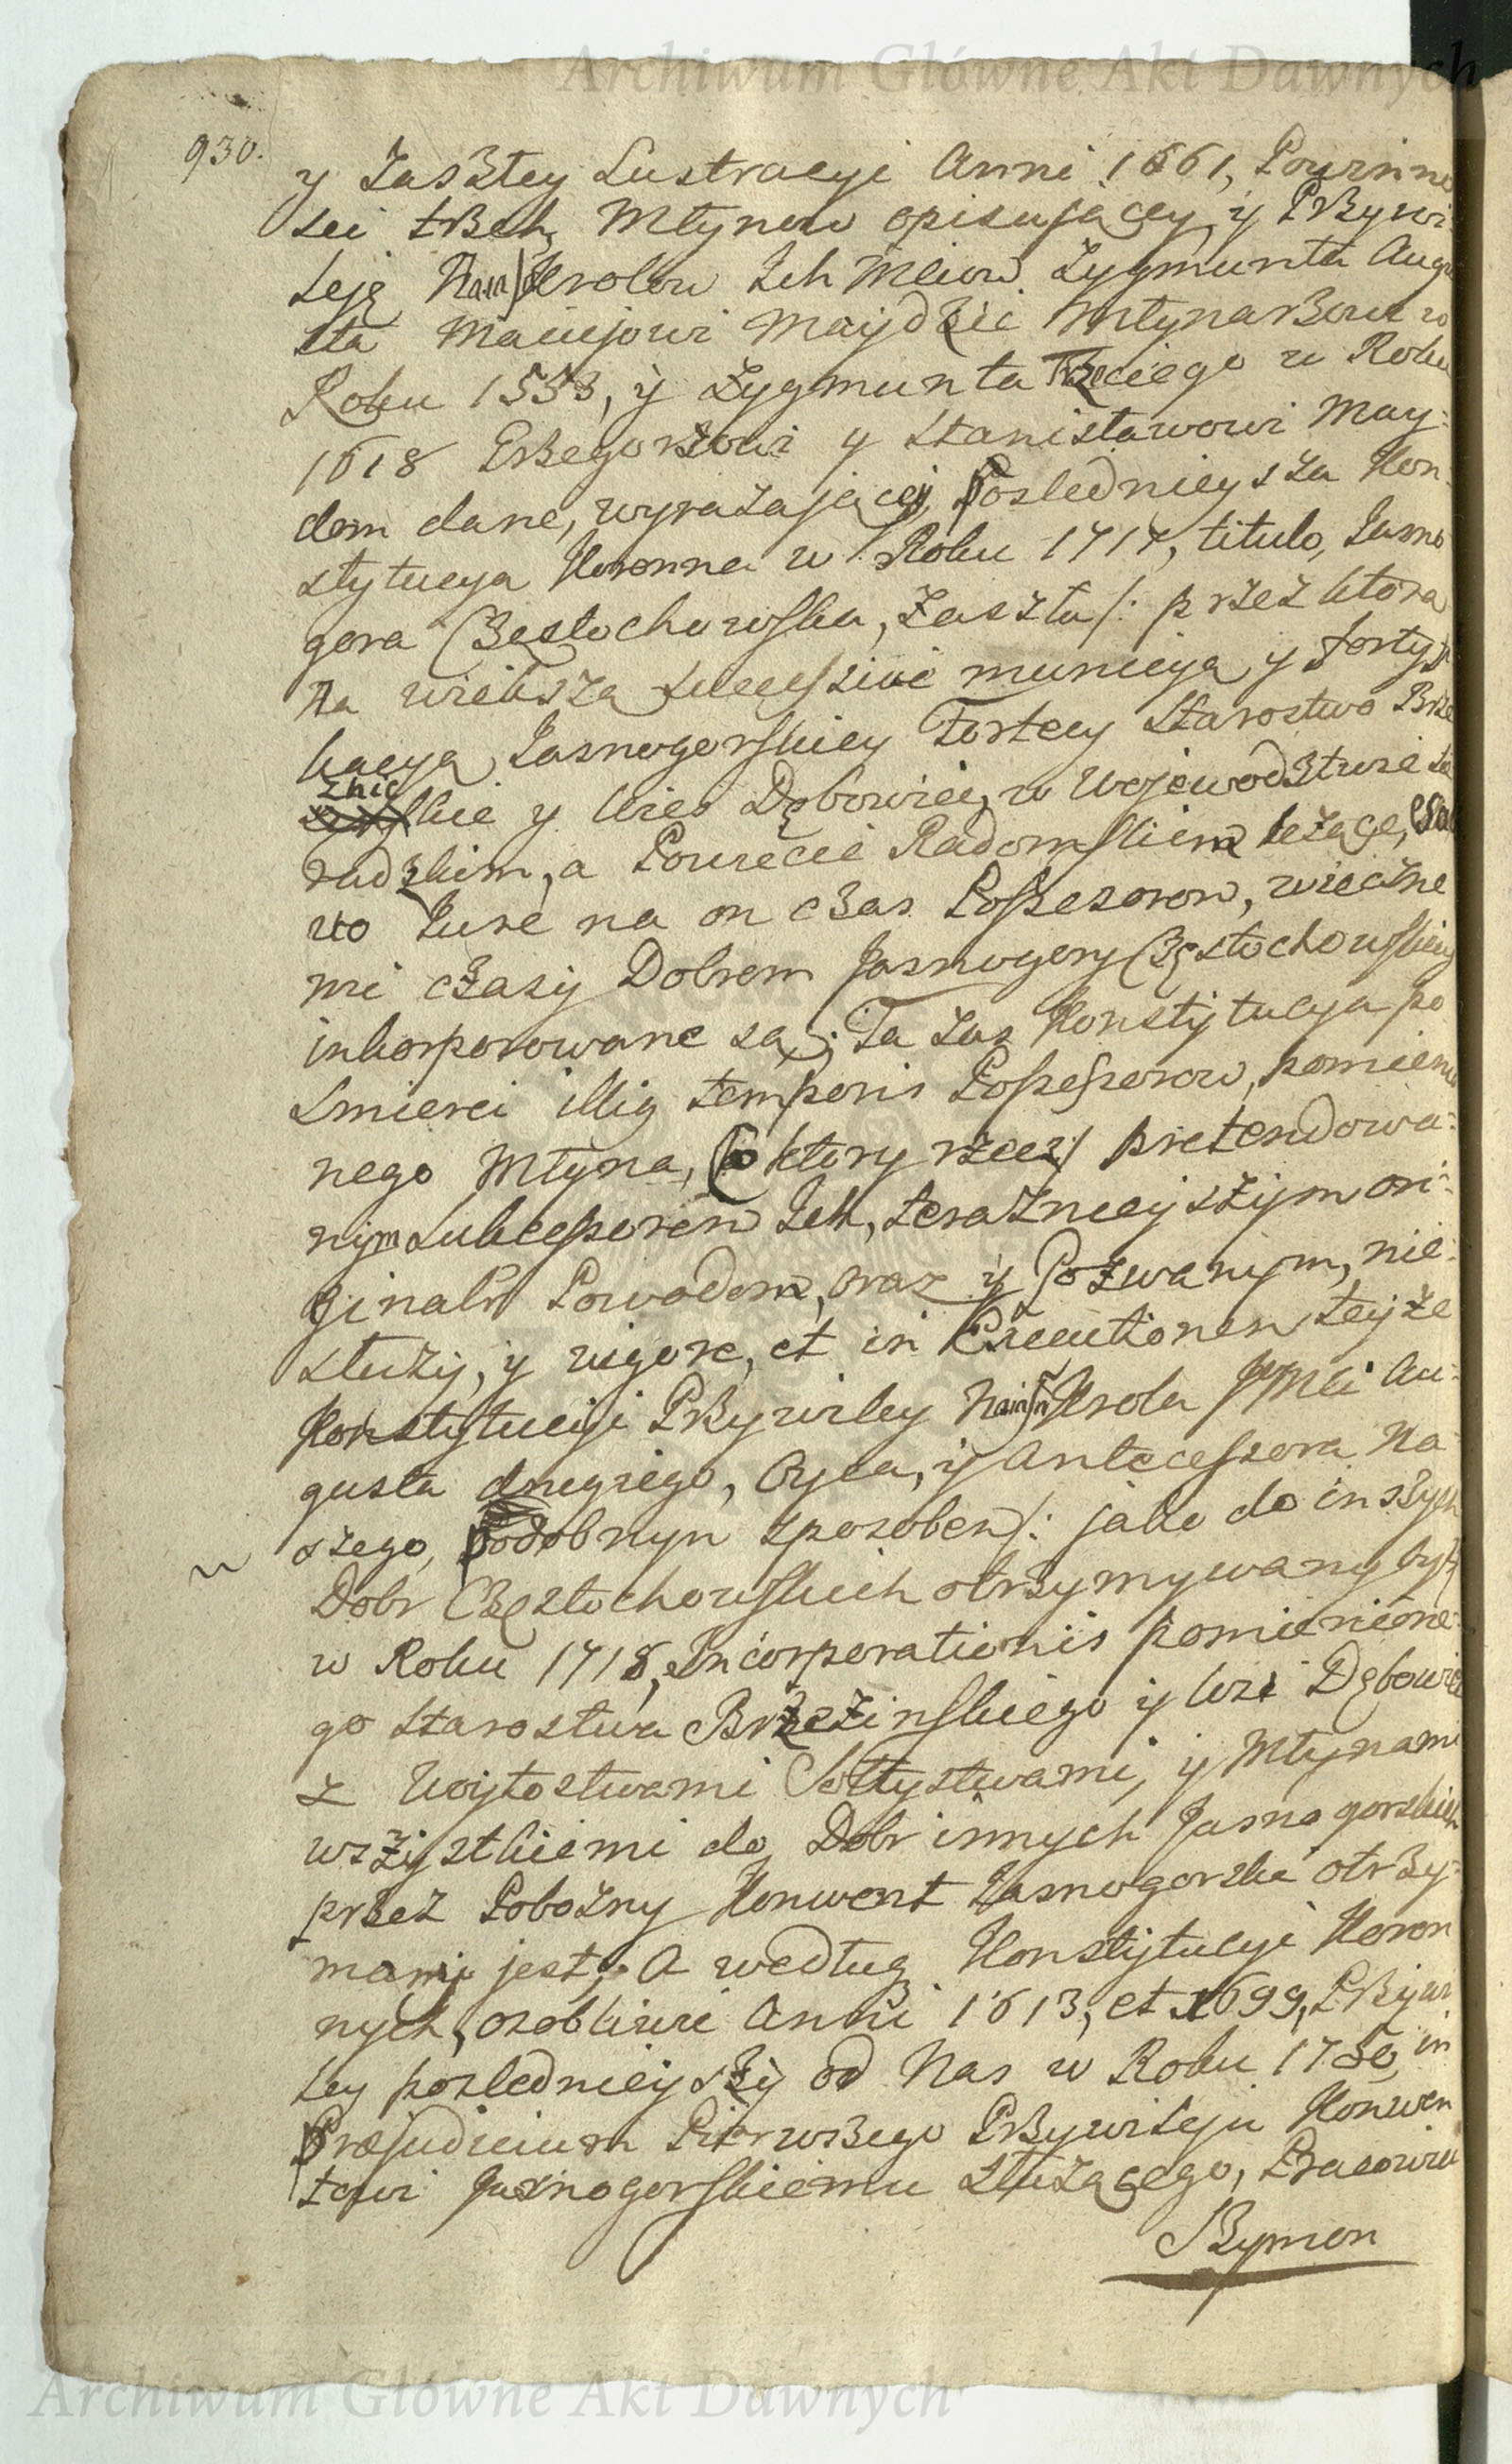 Archiwum Główne Akt Dawnych
930.
y zaszłey Lustracyi Anni 1661, Powinno
sci trzech Młynow opisującey, y Przywi
leję Krolow Ich Mciow Zygmunta Augu
sta Maciejowi Mayd Młynarzowi w
Roku 1553, y Zygmunta Trzeciego w Roku
1618 Grzegorzowi y Stanisławowi May-
dom dane, wyrazającey, Poslednieysza Kon
stytucya Koronna w Roku 1717, titulo, Jasno
gora Częstochowska, zaszła /: przez ktora
na większa successive municyą y fortyfi
kacyą Jasnogorskiey Fortecy Starostwo Brze
znic
skie y Wies Dębowiec, w Wojewodztwie Sie
radzkim, a Powiecie Radomskiem lezące, Sal
vo Jure na on czas Possesorow, wieczne
mi czasy Dobrom Jasnogory Częstochowskiey
inkorporowane są; Ta zas Konstytucya po
smierci illig temporis Possessorow, pomienio
nego Młyna, /o ktory rzecz/ pretendowa-
nym Sukcessorom Ich, teraznieyszym ori-
ginalr Powodom, oraz y Pozwanym, nie-
słuzy, y vigore, et in Executionem teyze
Konstytucyi Przywiley Krola JMci Au-
gusta drugiego, Oyca, y Antecessora Na
szego, podobnym sposobem /: jako do inszych
Dobr Częstochowskich otrzymywany był
w Roku 1718, Incorporationis pomienione-
go Starostwa Brzezinskiego y Wsi Dębowiec
z Woytostwami Sołtystwami, y Młynami
wszystkiemi do Dobr innych Jasnogorskich
przez Pobozny Konwent Jasnogorski otrzy-
many jest; A według Konstytucyi Koron
nych, osobliwie Anni 1613, et 1699, Przywi
ley poslednieyszy od Nas w Roku 1750, in
Præjudicium Pierwszego Przywileju Konwen
towi Jasnogorskiemu słuzącego, Pracowitu
Szymon
Archiwum Główne Akt Dawnych